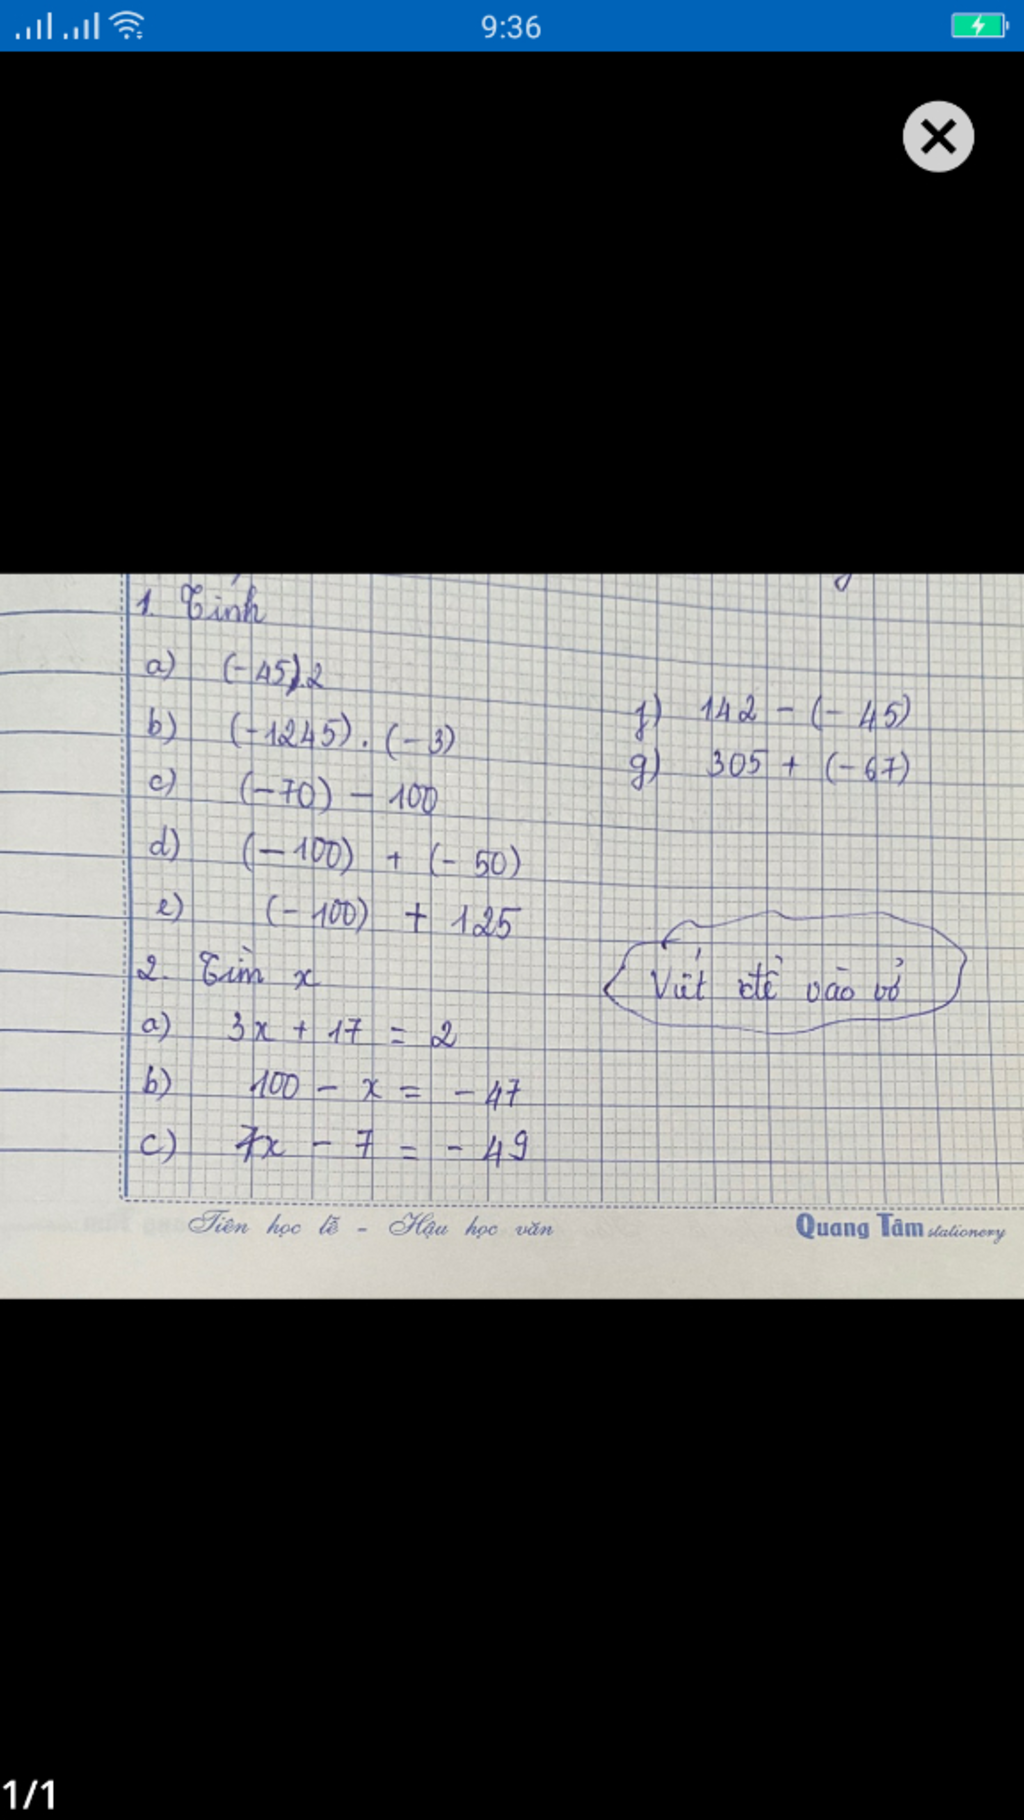 9:36
1. Tính
a) (-45).2
b) (-1245) . (-3)
c) (-70) - 100
d) (- 100) + (- 50)
e) (- 100) + 125
f) 142 - (- 45)
g) 305 + (-67)
2. Tìm x
a) 3x + 17 = 2
b) 100 - x = - 47
c) 7x - 7 = - 49
Viết đề vào vở
Tiên học lễ - Hậu học văn
Quang Tâm stationery
1/1